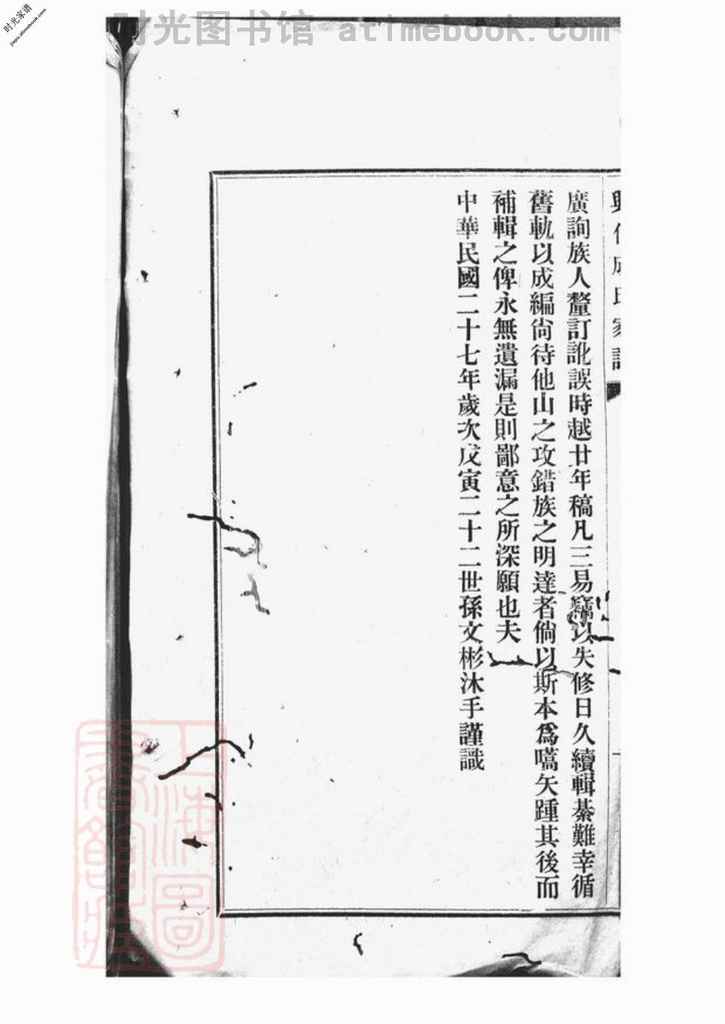 时光图书馆 - atimebook.com
时光家谱
廣詢族人釐訂訛誤時越廿年稿凡三易竊以失修日久續輯綦難幸循
舊軌以成編尙待他山之攻錯族之明達者倘以斯本爲嚆矢踵其後而
補輯之俾永無遺漏是則鄙意之所深願也夫
中華民國二十七年歲次戊寅二十二世孫文彬沐手謹識
上海圖書館藏